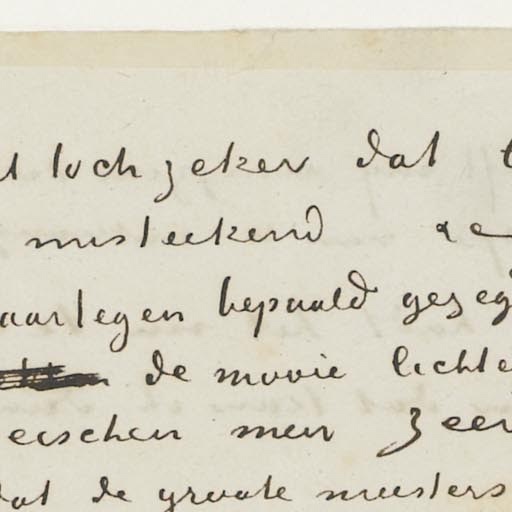 toch zeker dat
misteekend
daartegen bepaald gezeg
de mooie lichte
eischen men zeer
dat de groote meesters